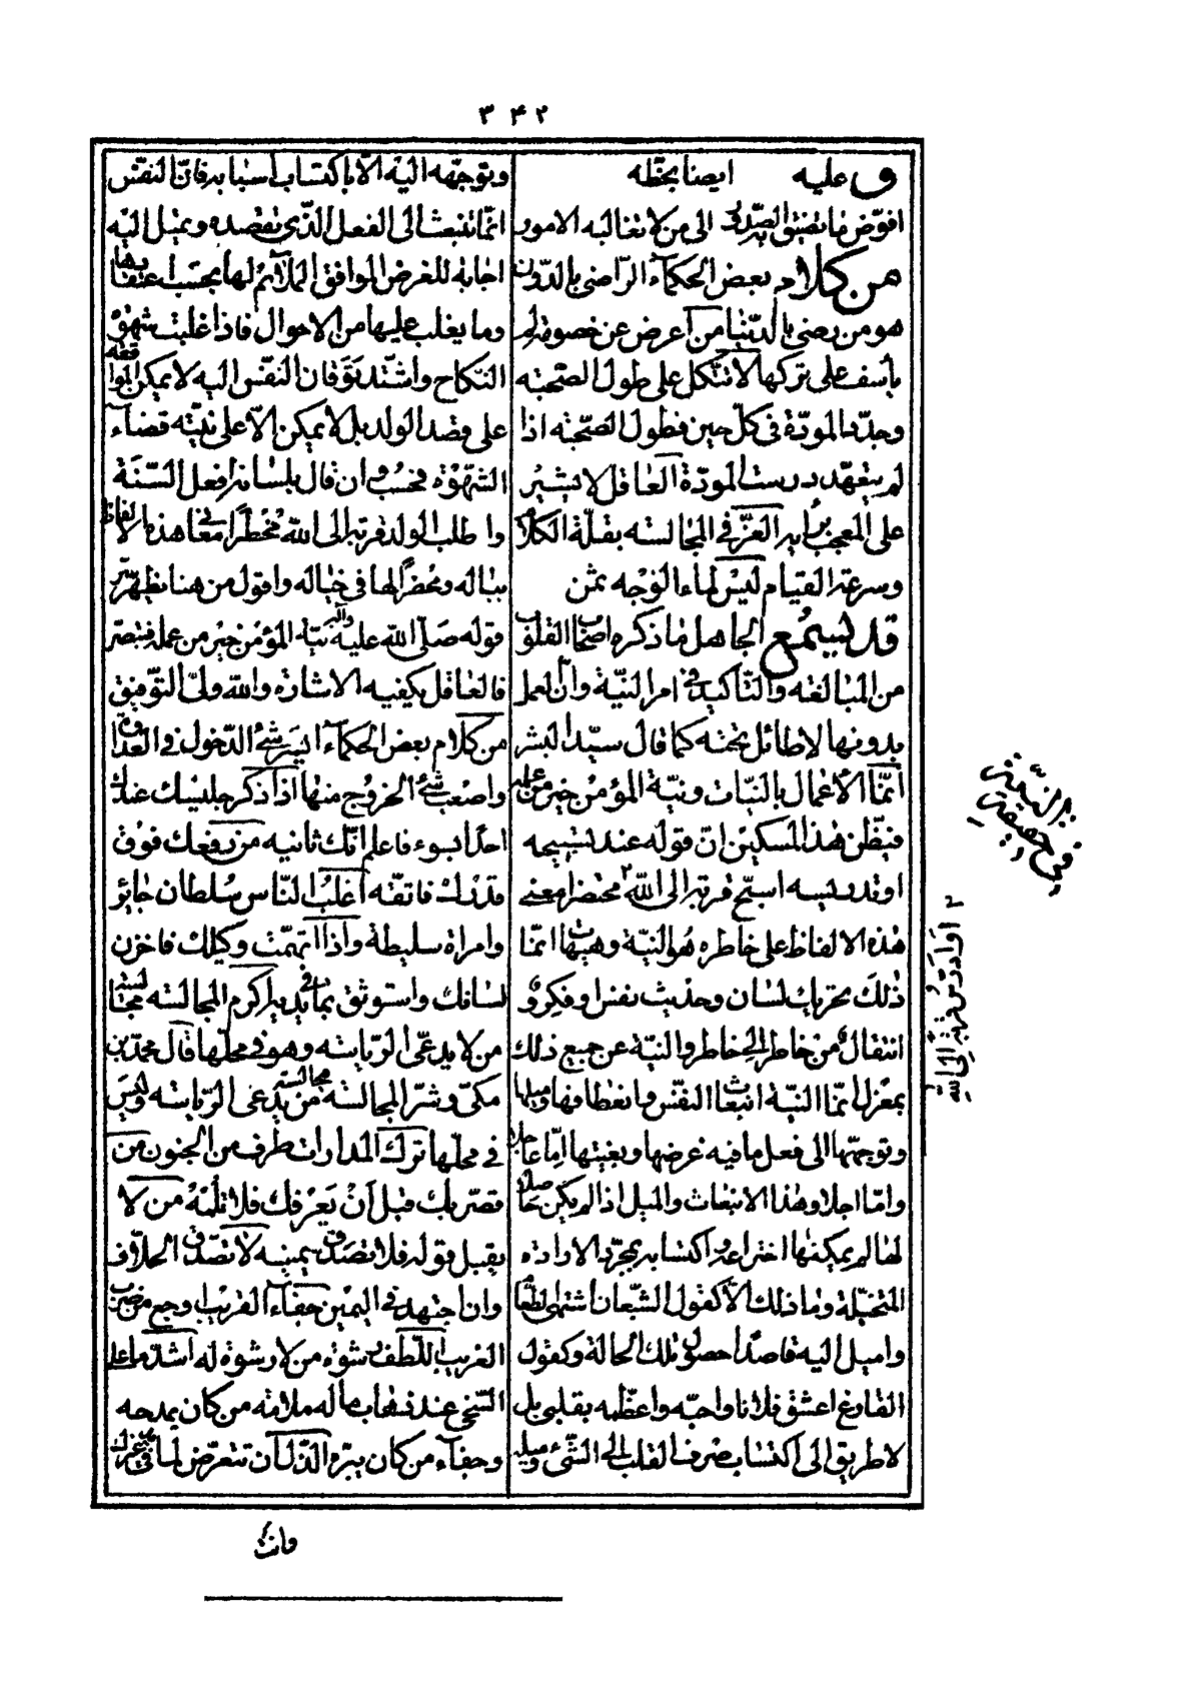 ٣٤٢
و عليه ايضا بخطّه
افوّض ما تضيق به الصّدور الى من لا تغالبه الامور
من كلام بعض الحكمآء الرّاضى بالدّون
هو من رضى بالدّنيا من اعرض عن خصومة لم
يأسف على تركها لا تتّكل على طول الصّحبة
وجدّد المودّة فى كلّ حين فطول الصّحبة اذا
لم يتعهّد درست المودّة العاقل لا يشير
على المعجب برأيه العزّ فى المجالسة بقلّة الكلام
وسرعة القيام ليس لماء الوجه ثمن
قد يسمع الجاهل ما ذكره اصحاب القلوب
من المبالغة والتّأكيد فى امر النيّة وانّ العمل
بدونها لا طائل تحته كما قال سيّد البشر
انّما الأعمال بالنيّات ونيّة المؤمن خير من عمله
فيظّن هذا المسكين انّ قوله عند تسبيحه
او تدريسه اسبّح قربة الى اللّه محتضرا معنى
هذه الالفاظ على خاطره هو النيّة وهيهات انّما
ذلك تحريك لسان وحديث نفس او فكر و
انتقال من خاطر الى خاطر والنيّة عن جميع ذلك
بمعزل انّما النيّة انبعاث النفس وانعطافها وميلها
وتوجّهها الى فعل ما فيه غرضها وبغيتها امّا عاجلا
وامّا اجلا وهذا الانبعاث والميل اذا لم يكن حاصلا
لها لم يمكنها اختراعه واكتسابه بمجرّد الارادة
المتخيّلة وما ذلك الّا كقول الشّبعان اشتهى الطّعام
واميل اليه قاصدا حصول تلك الحالة وكقول
الفارغ اعشق فلانا واحبّه واعظّمه بقلبى بل
لا طريق الى اكتساب صرف القلب الى الشّىء وميله
وتوجّهه اليه الّا باكتساب اسبابه فانّ النفس
انّما تنبعث الى الفعل الّذى تقصده وتميل اليه
اجابة للغرض الموافق الملآئم لها بحسب اعتقادها
وما يغلب عليها من الاحوال فاذا غلبت شهوة
النّكاح واشتدّ توقان النّفس اليه لا يمكن المواقعة
على قصد الولد بل لا يمكن الّا على نيّة قضآء
الشّهوة فحسب وان قال بلسانه افعل السّنة
واطلب الولد قربة الى اللّه مخطرا معانى هذه الالفاظ
بباله ومحضرا لها فى خياله واقول من هنا يظهر سرّ
قوله صلّى اللّه عليه وآله نيّة المؤمن خير من عمله فتبصّر
فالعاقل يكفيه الاشارة واللّه ولىّ التوفيق
من كلام بعض الحكمآء ايسر شىء الدّخول فى العداوة
واصعب شىء الخروج منها اذا ذكر جليسك عندك
احدا بسوء فاعلم انّك ثانيه من رفعك فوق
قدرك فاتّقه اغلب النّاس سلطان جائر
وامراة سليطة واذا اتّهمت وكيلك فاخزن
لسانك واستوثق بما فى يديه اكرم المجالسة مجالسة
من لا يدعى الرّياسة وهو فى محلّها قال محمّد بن
مكىّ وشرّ المجالسة مجالسة من يدعى الرّياسة وليس
فى محلّها ترك المدارات طرف من الجنون من
قصّر بك قبل أن يعرفك فلا تلمه من لا
يقبل قوله فلا تصدّق يمينه لا تصدّق الحلّاف
وان اجتهد فى اليمين جفآء القريب اوجع من ضرب
الغريب اللّطف رشوة من لا رشوة له اشدّ ما على
السّخى عند ذهاب ماله ملامة من كان يمدحه
وجفآء من كان يبرّه الذّل ان تتعرّض لما فى يد غيرك
وانت
فى حقيقة النيّة
٢ او ادرّس قربة الى اللّه